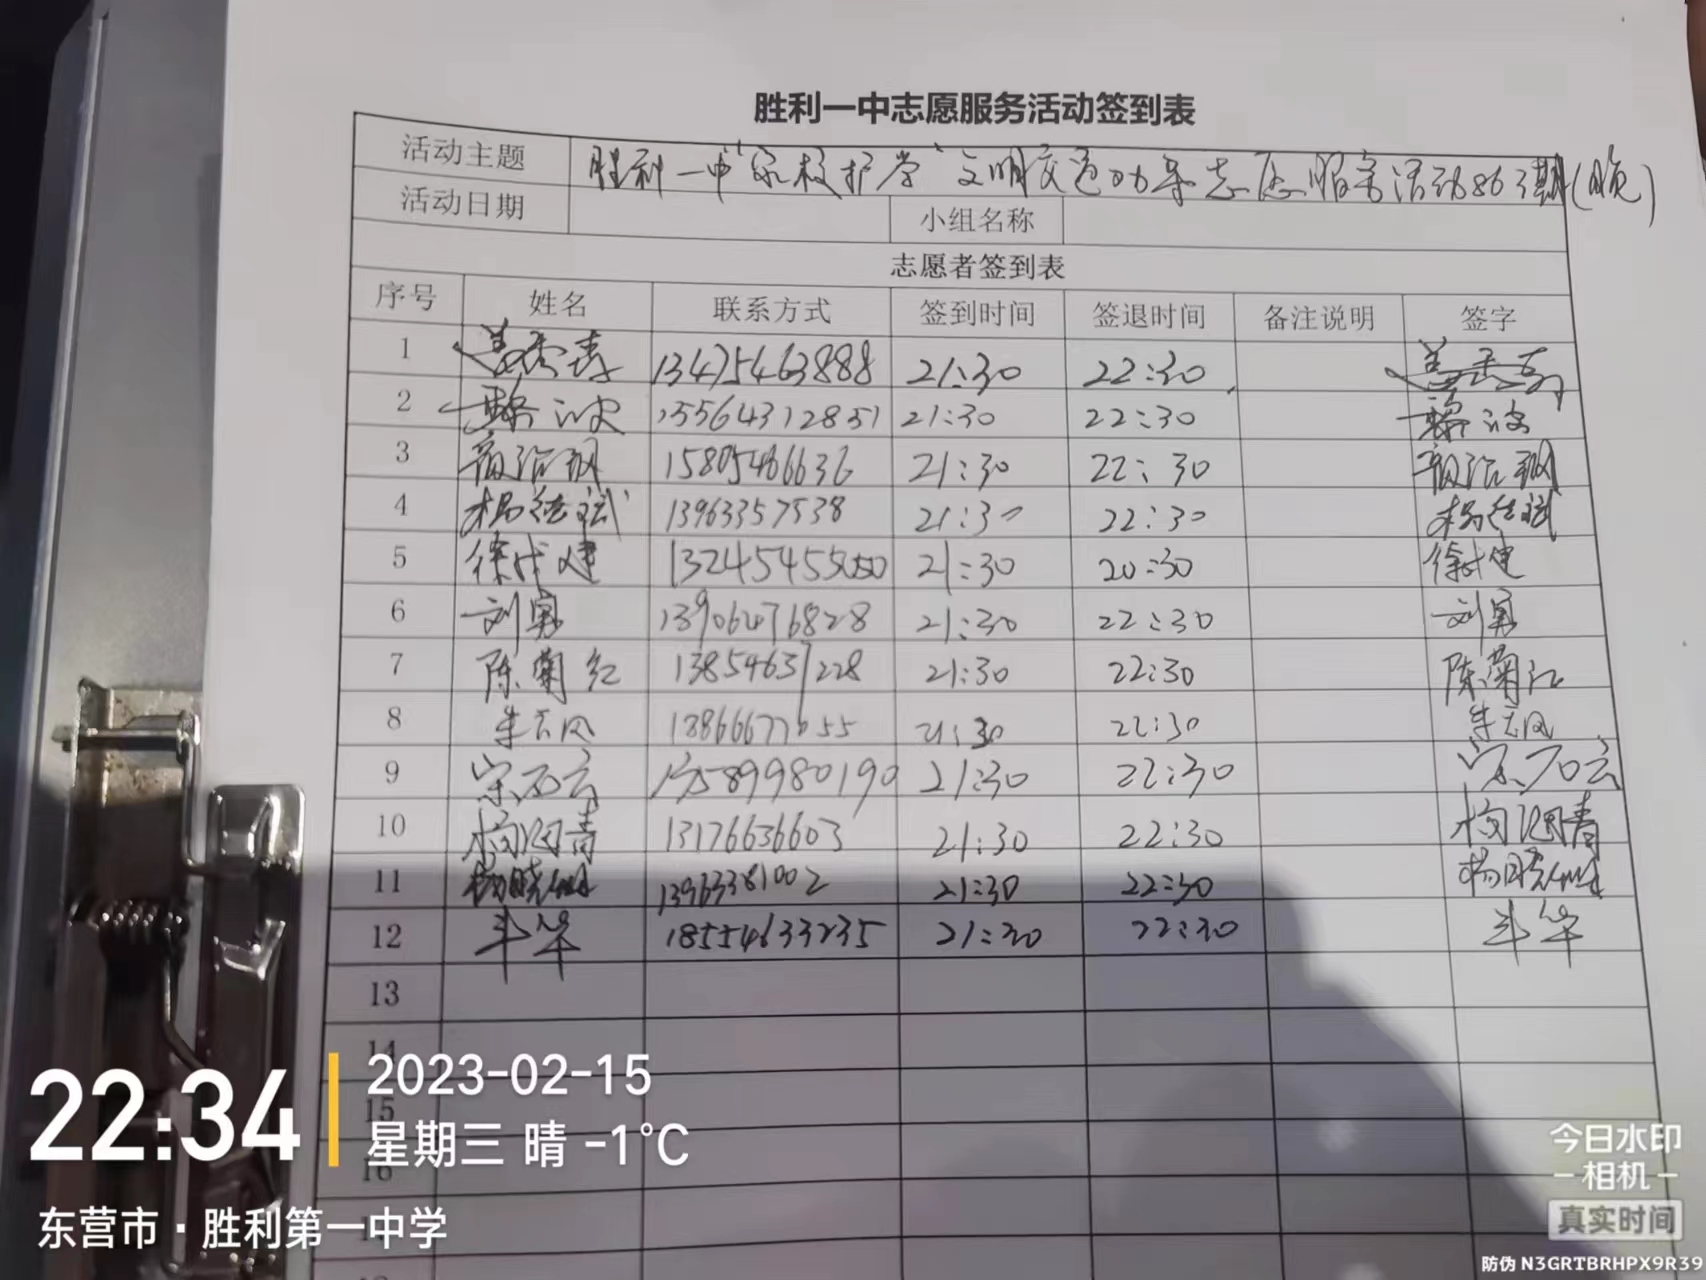 胜利一中志愿服务活动签到表
活动主题 胜利一中“家校护学”文明交通劝导志愿服务活动863期(晚)
活动日期 小组名称
志愿者签到表
序号 姓名 联系方式 签到时间 签退时间 备注说明 签字
1 13475463888 21:30 22:30
2 15564312851 21:30 22:30
3 15805466636 21:30 22:30
4 杨德斌 13963357538 21:30 22:30 杨德斌
5 徐成建 21:30 20:30 徐成建
6 刘勇 13906476828 21:30 22:30 刘勇
7 陈菊红 13854637228 21:30 22:30 陈菊红
8 朱云风 21:30 22:30 朱云风
9 13589980190 21:30 22:30
10 13176636603 21:30 22:30
11 13963381002 21:30 22:30
12 18554633235 21:30 22:30
13
14
15
16
22:34
2023-02-15
星期三 晴 -1℃
东营市·胜利第一中学
今日水印
-相机-
真实时间
防伪 N3GRTBRHPX9R39